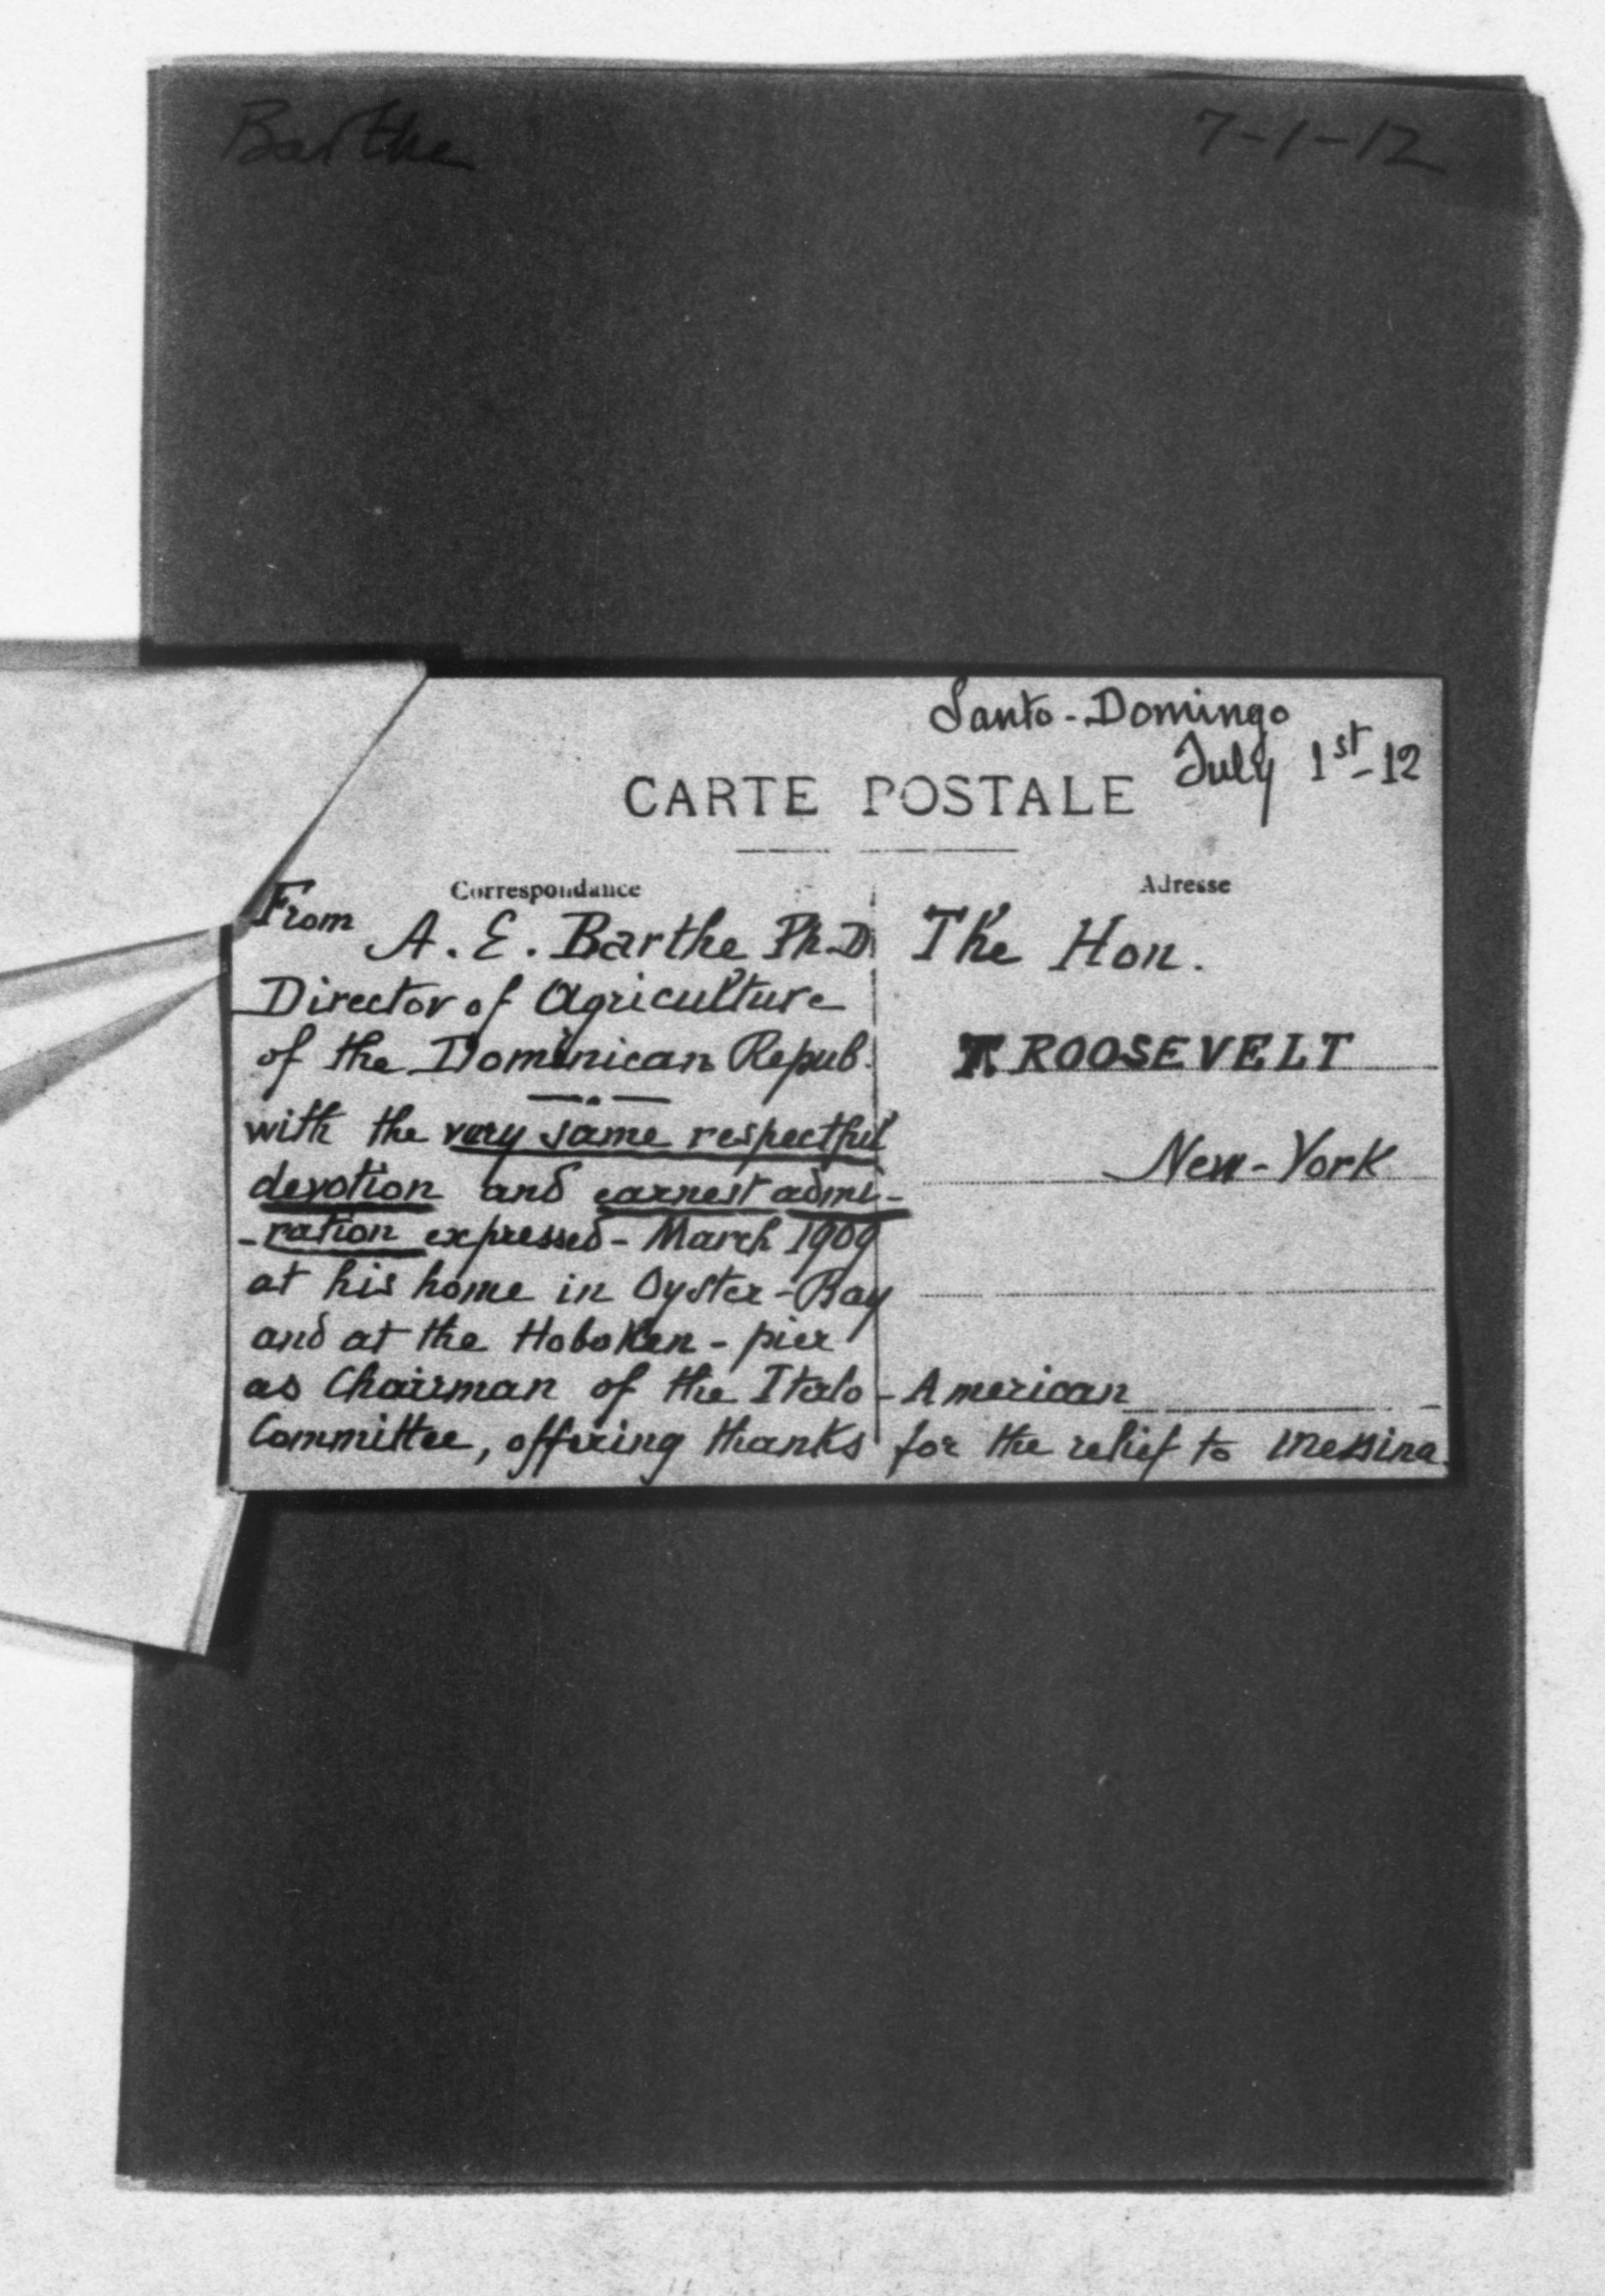 Barthe 7-1-12
Santo-Domingo
July 1st-12
CARTE POSTALE
Correspondance
From
A. E. Barthe Ph.D
Director of Agriculture
of the Dominican Repub.
with the very same respectful
devotion and earnest admi-
-ration expressed - March 1909
at his home in Oyster-Bay
and at the Hoboken-pier
as Chairman of the Italo-American
Committee, offering thanks for the relief to Messina
Adresse
The Hon.
T. ROOSEVELT
New-York